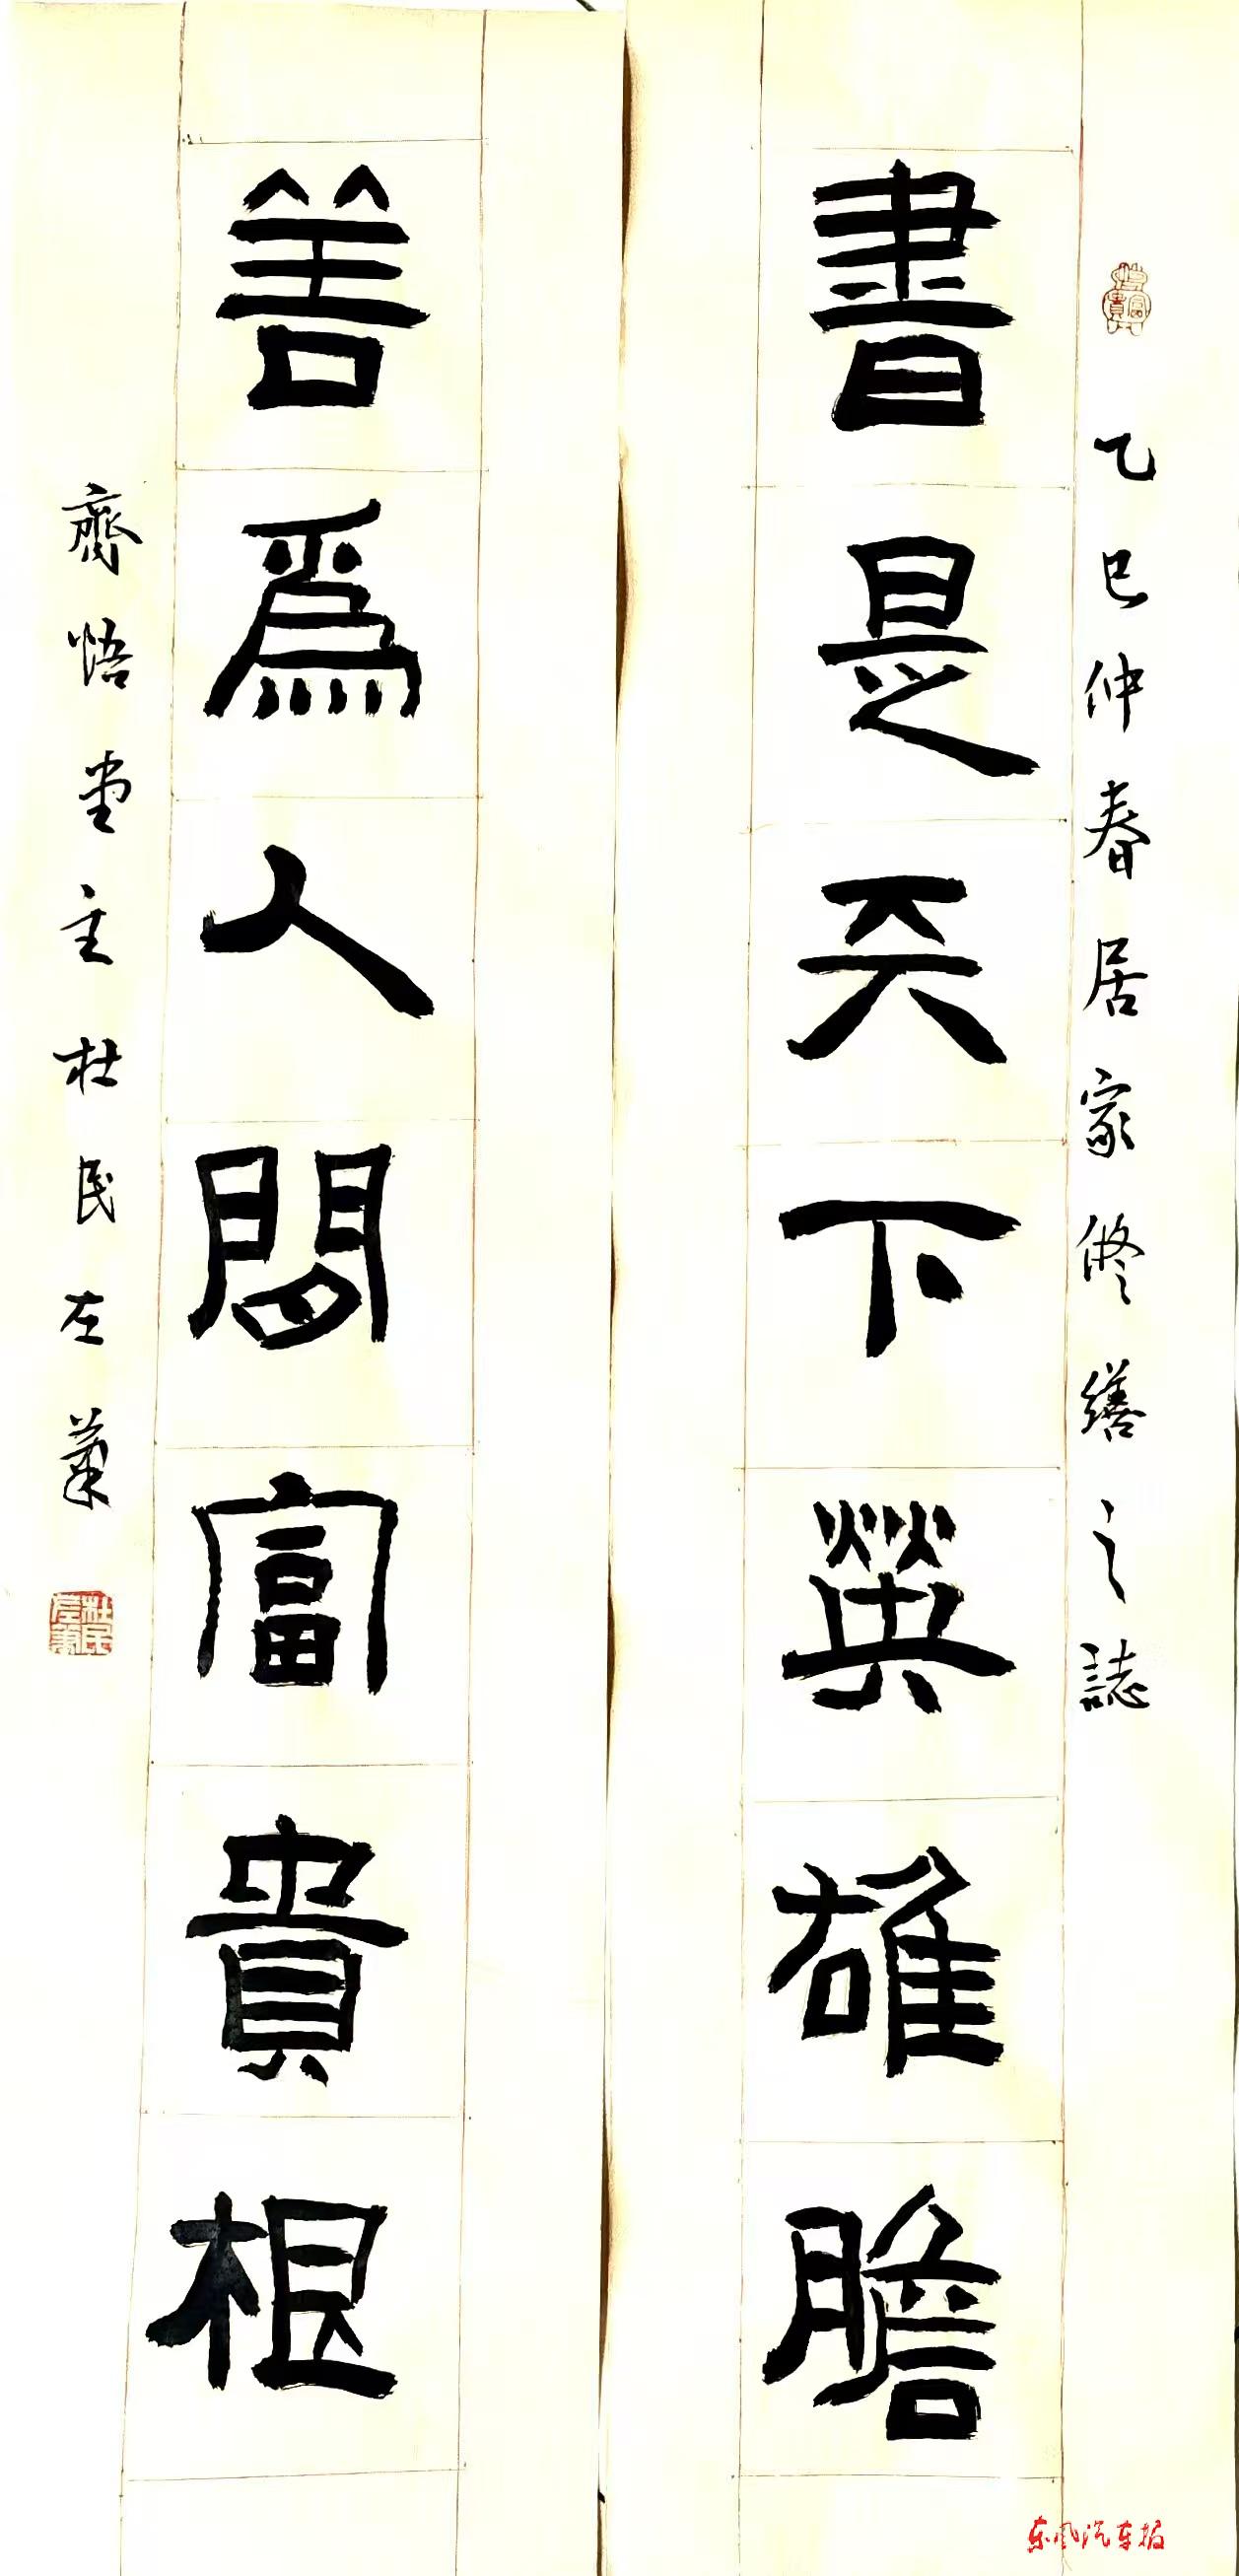 乙巳仲春居家修缮之誌
書是天下英雄膽
善爲人間富貴根
齋悟堂主杜民左筆
杜民左筆
东风汽车报